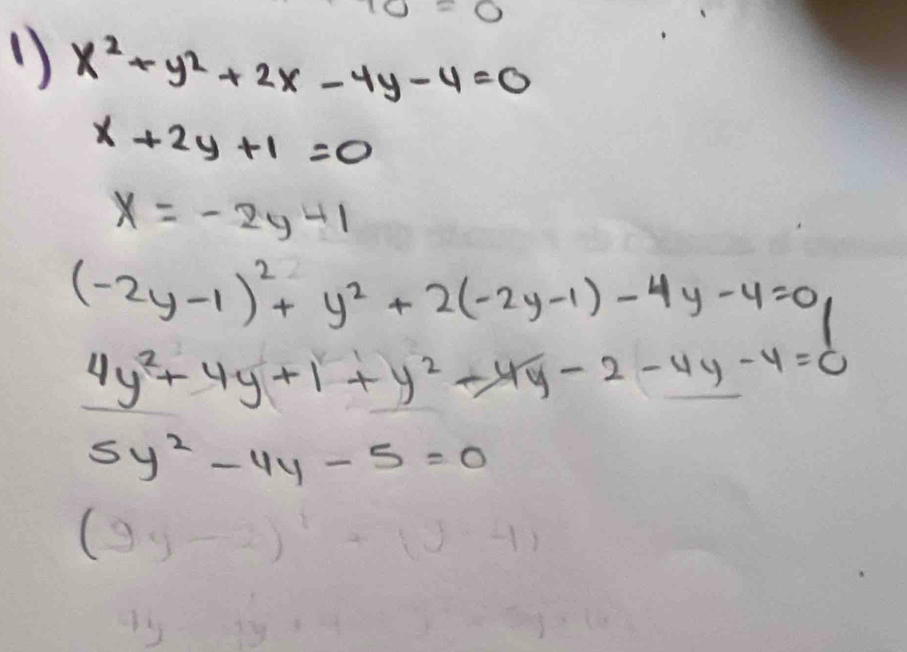 10 = 0
1) x² + y² + 2x - 4y - 4 = 0
x + 2y + 1 = 0
x = - 2y + 1
(-2y - 1)² + y² + 2(-2y - 1) - 4y - 4 = 0
4y² + 4y + 1 + y² - 4y - 2 - 4y - 4 = 0
5y² - 4y - 5 = 0